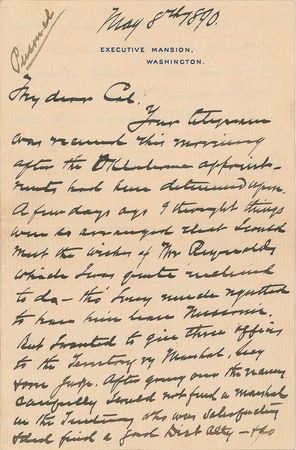 Personal
May 8th 1890.
EXECUTIVE MANSION,
WASHINGTON.
My dear Col.
Your telegram
was received this morning
after the Oklahoma appoint-
ments had been determined upon.
A few days ago I thought things
were so arranged that I could
meet the wishes of Mr Reynolds
which I was quite inclined
to do - tho' I very much regretted
to have him leave Missouri.
But I wanted to give three offices
to the Territory viz Marshal, Atty
& one Judge. After going over the names
carefully I could not find a Marshal
in the Territory who was satisfactory
& did find a good Dist Atty - & so